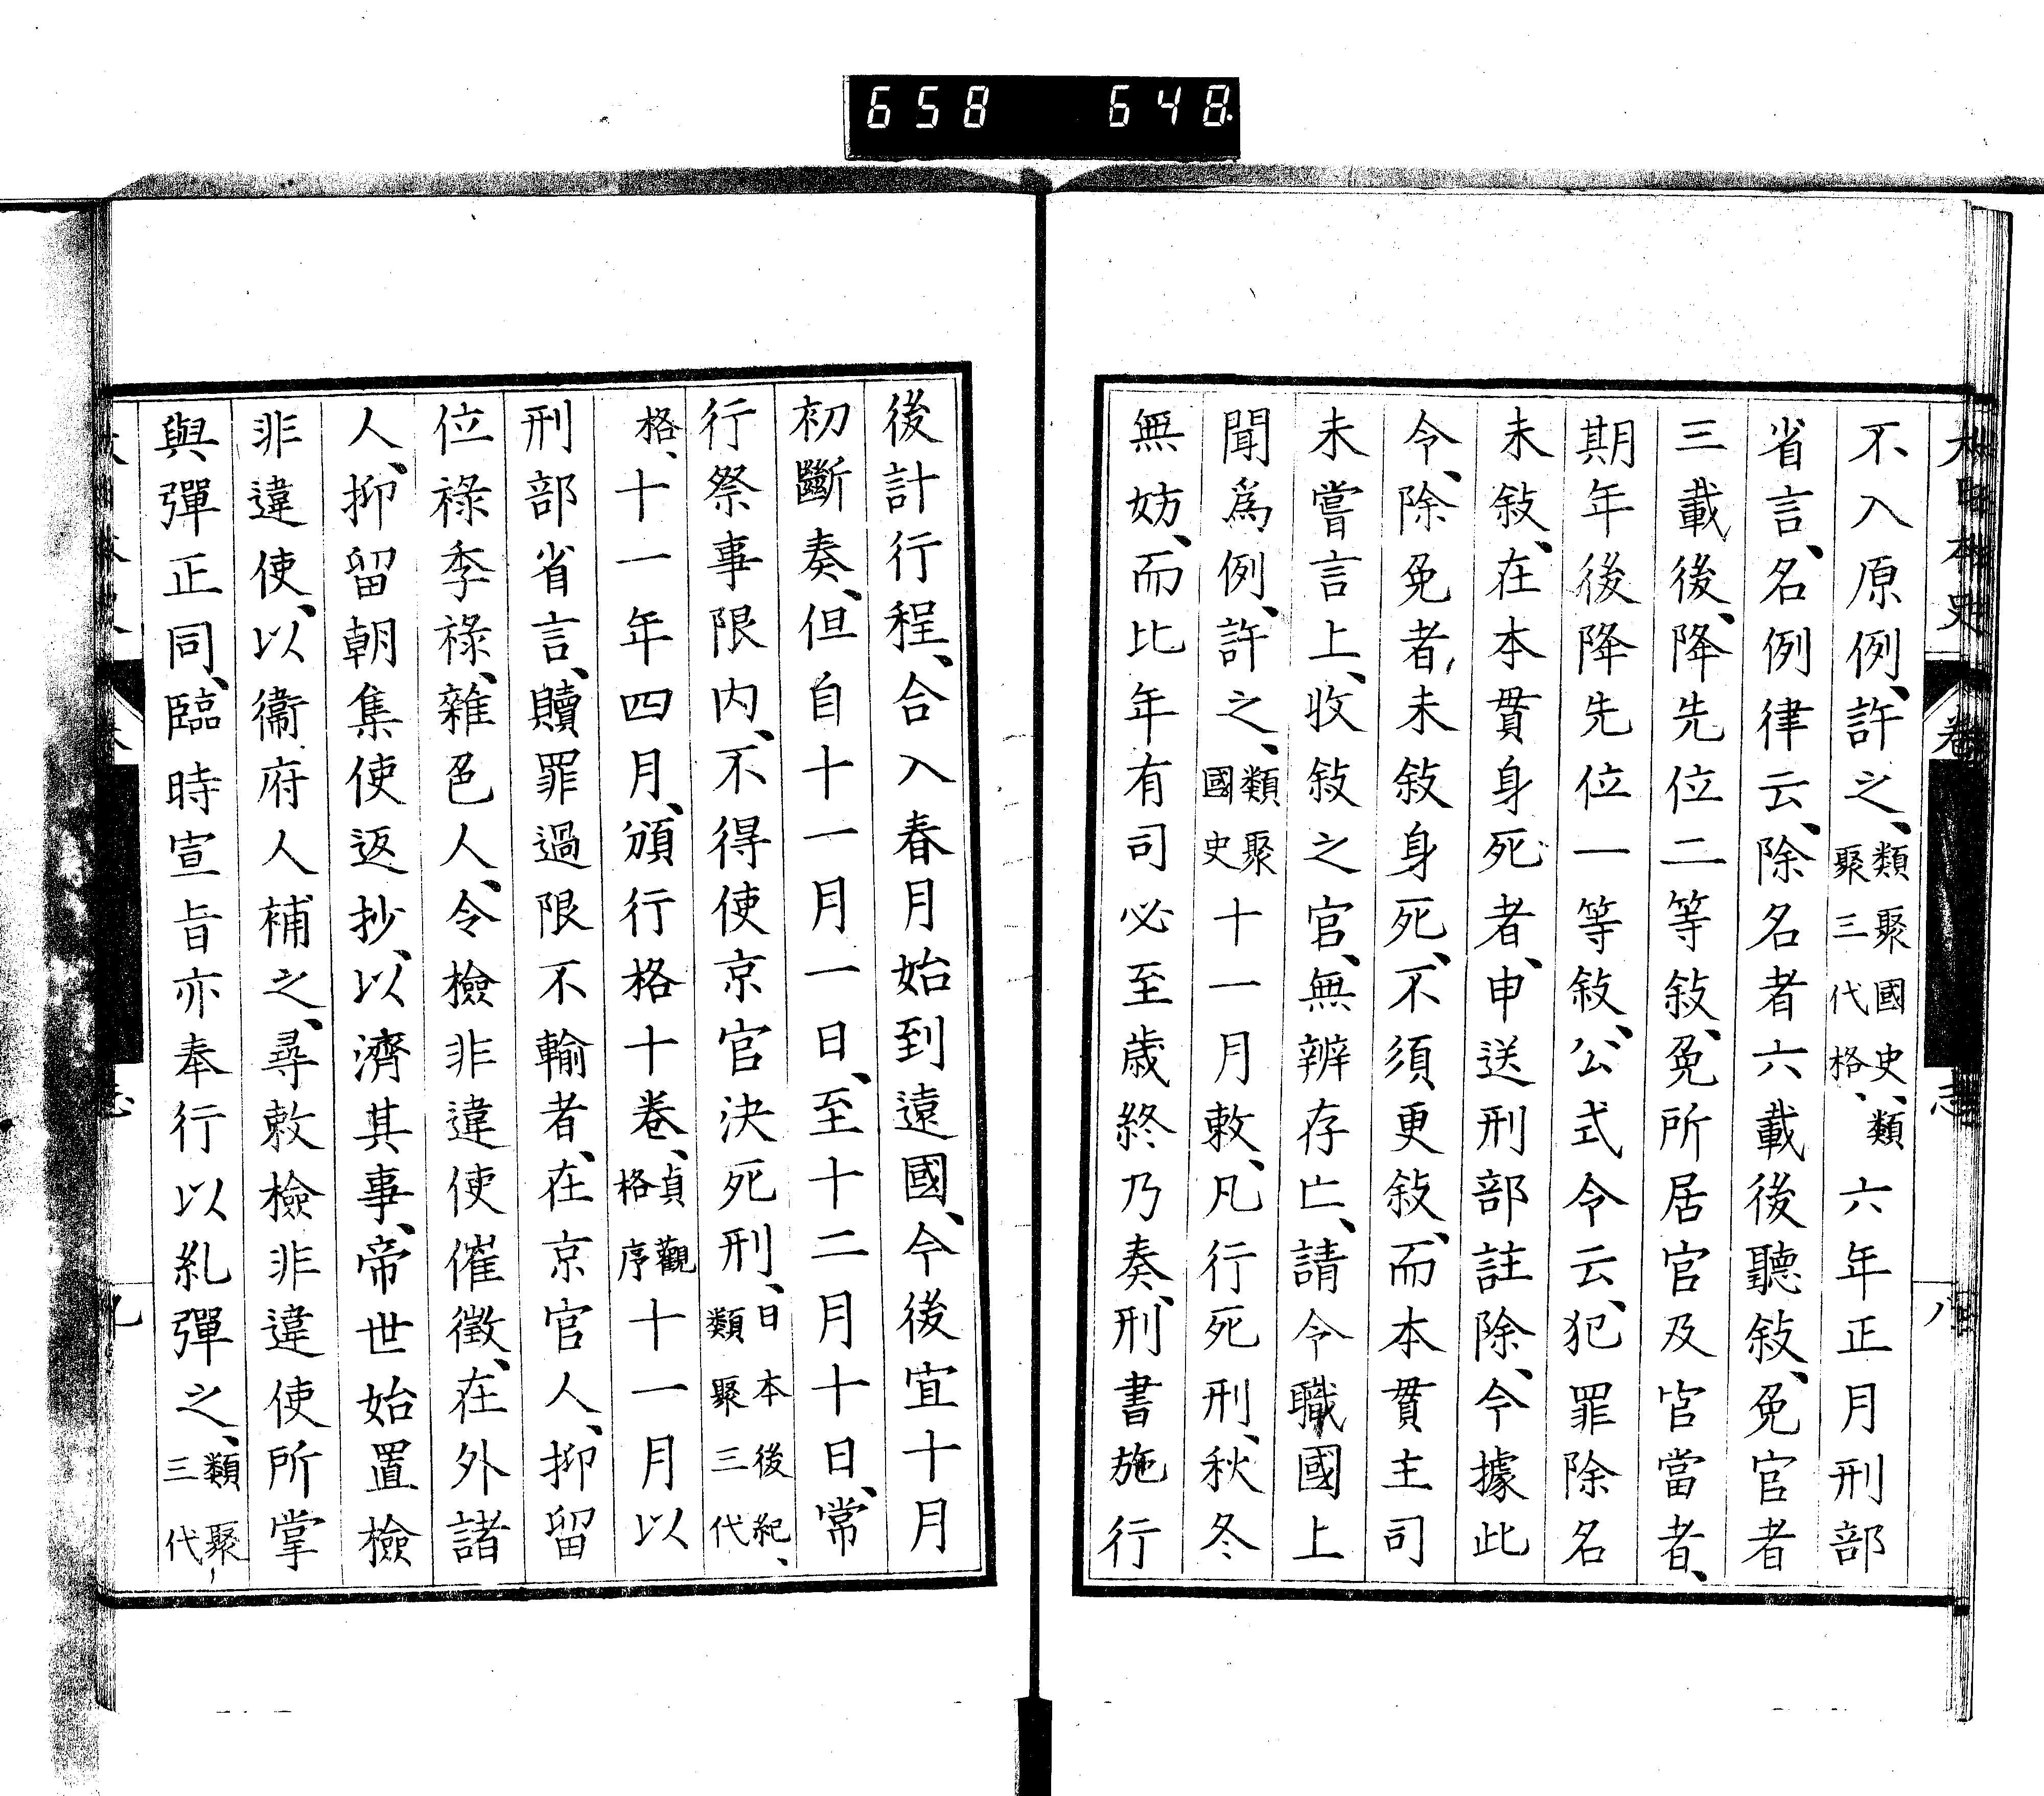 658 648
大日本史 卷 志 八
不入原例、許之、類聚國史、類聚三代格、六年正月刑部
省言、名例律云、除名者六載後聽敍、免官者
三載後、降先位二等敍、免所居官及官當者、
期年後降先位一等敍、公式令云、犯罪除名
未敍、在本貫身死者、申送刑部註除、今據此
令、除免者、未敍身死、不須更敍、而本貫主司
未嘗言上、收敍之官、無辨存亡、請令職國上
聞爲例、許之、類聚國史十一月敕、凡行死刑、秋冬
無妨、而比年有司必至歲終乃奏、刑書施行
後計行程、合入春月始到遠國、今後宜十月
初斷奏、但自十一月一日、至十二月十日、常
行祭事限内、不得使京官決死刑、日本後紀、類聚三代
格、十一年四月、頒行格十卷、貞觀格序十一月以
刑部省言、贖罪過限不輸者、在京官人、抑留
位祿季祿、雜色人、令檢非違使催徵、在外諸
人、抑留朝集使返抄、以濟其事、帝世始置檢
非違使、以衞府人補之、尋敕檢非違使所掌
與彈正同、臨時宣旨亦奉行以糺彈之、類聚三代
志 九